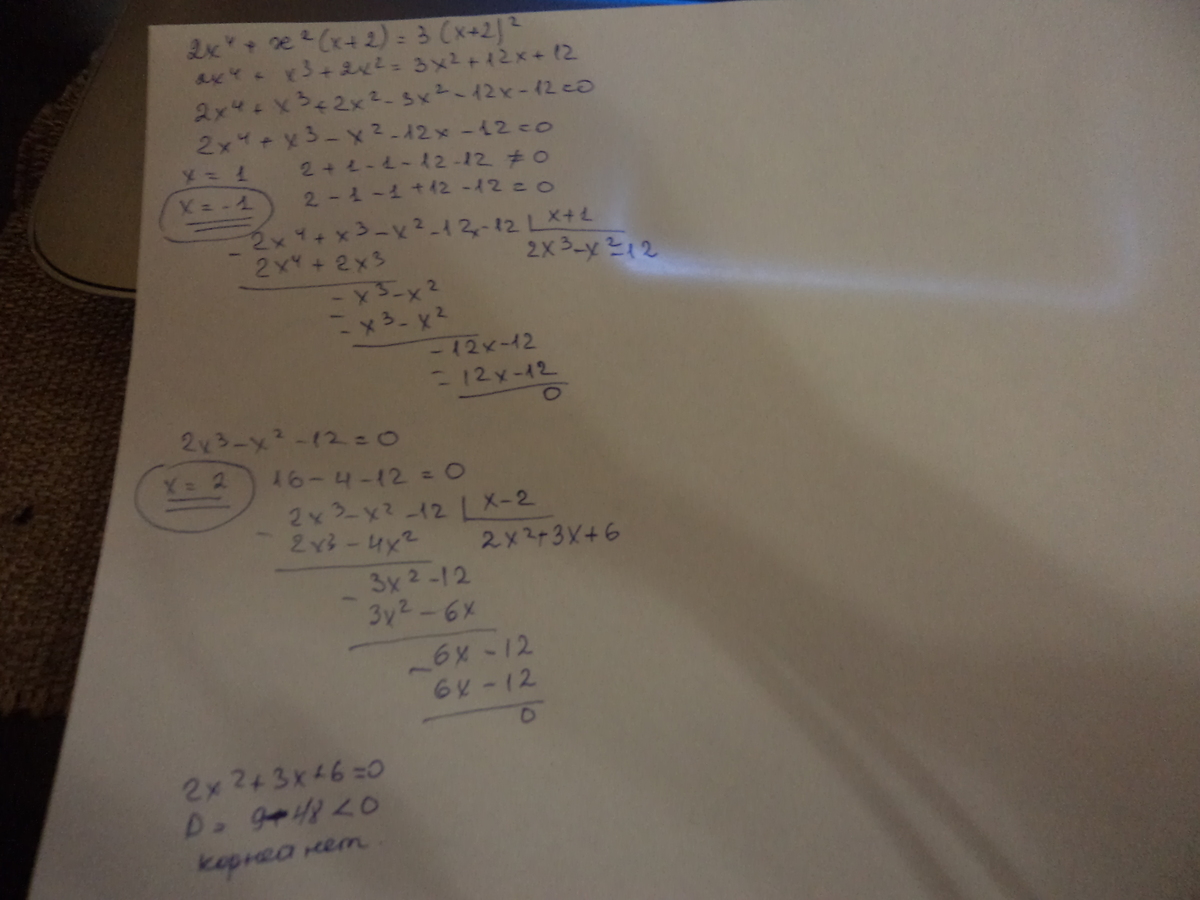 2x⁴ + x²(x+2) = 3(x+2)²
2x⁴ + x³ + 2x² = 3x² + 12x + 12
2x⁴ + x³ + 2x² - 3x² - 12x - 12 = 0
2x⁴ + x³ - x² - 12x - 12 = 0
x = 1 2 + 1 - 1 - 12 - 12 ≠ 0
x = -1 2 - 1 - 1 + 12 - 12 = 0
- 2x⁴ + x³ - x² - 12x - 12 | x+1
2x⁴ + 2x³ 2x³ - x² - 12
- x³ - x²
- - x³ - x²
- 12x - 12
- - 12x - 12
0
2x³ - x² - 12 = 0
x = 2 16 - 4 - 12 = 0
- 2x³ - x² - 12 | x - 2
2x³ - 4x² 2x² + 3x + 6
- 3x² - 12
3x² - 6x
- 6x - 12
6x - 12
0
2x² + 3x + 6 = 0
D = 9 - 48 < 0
корней нет.